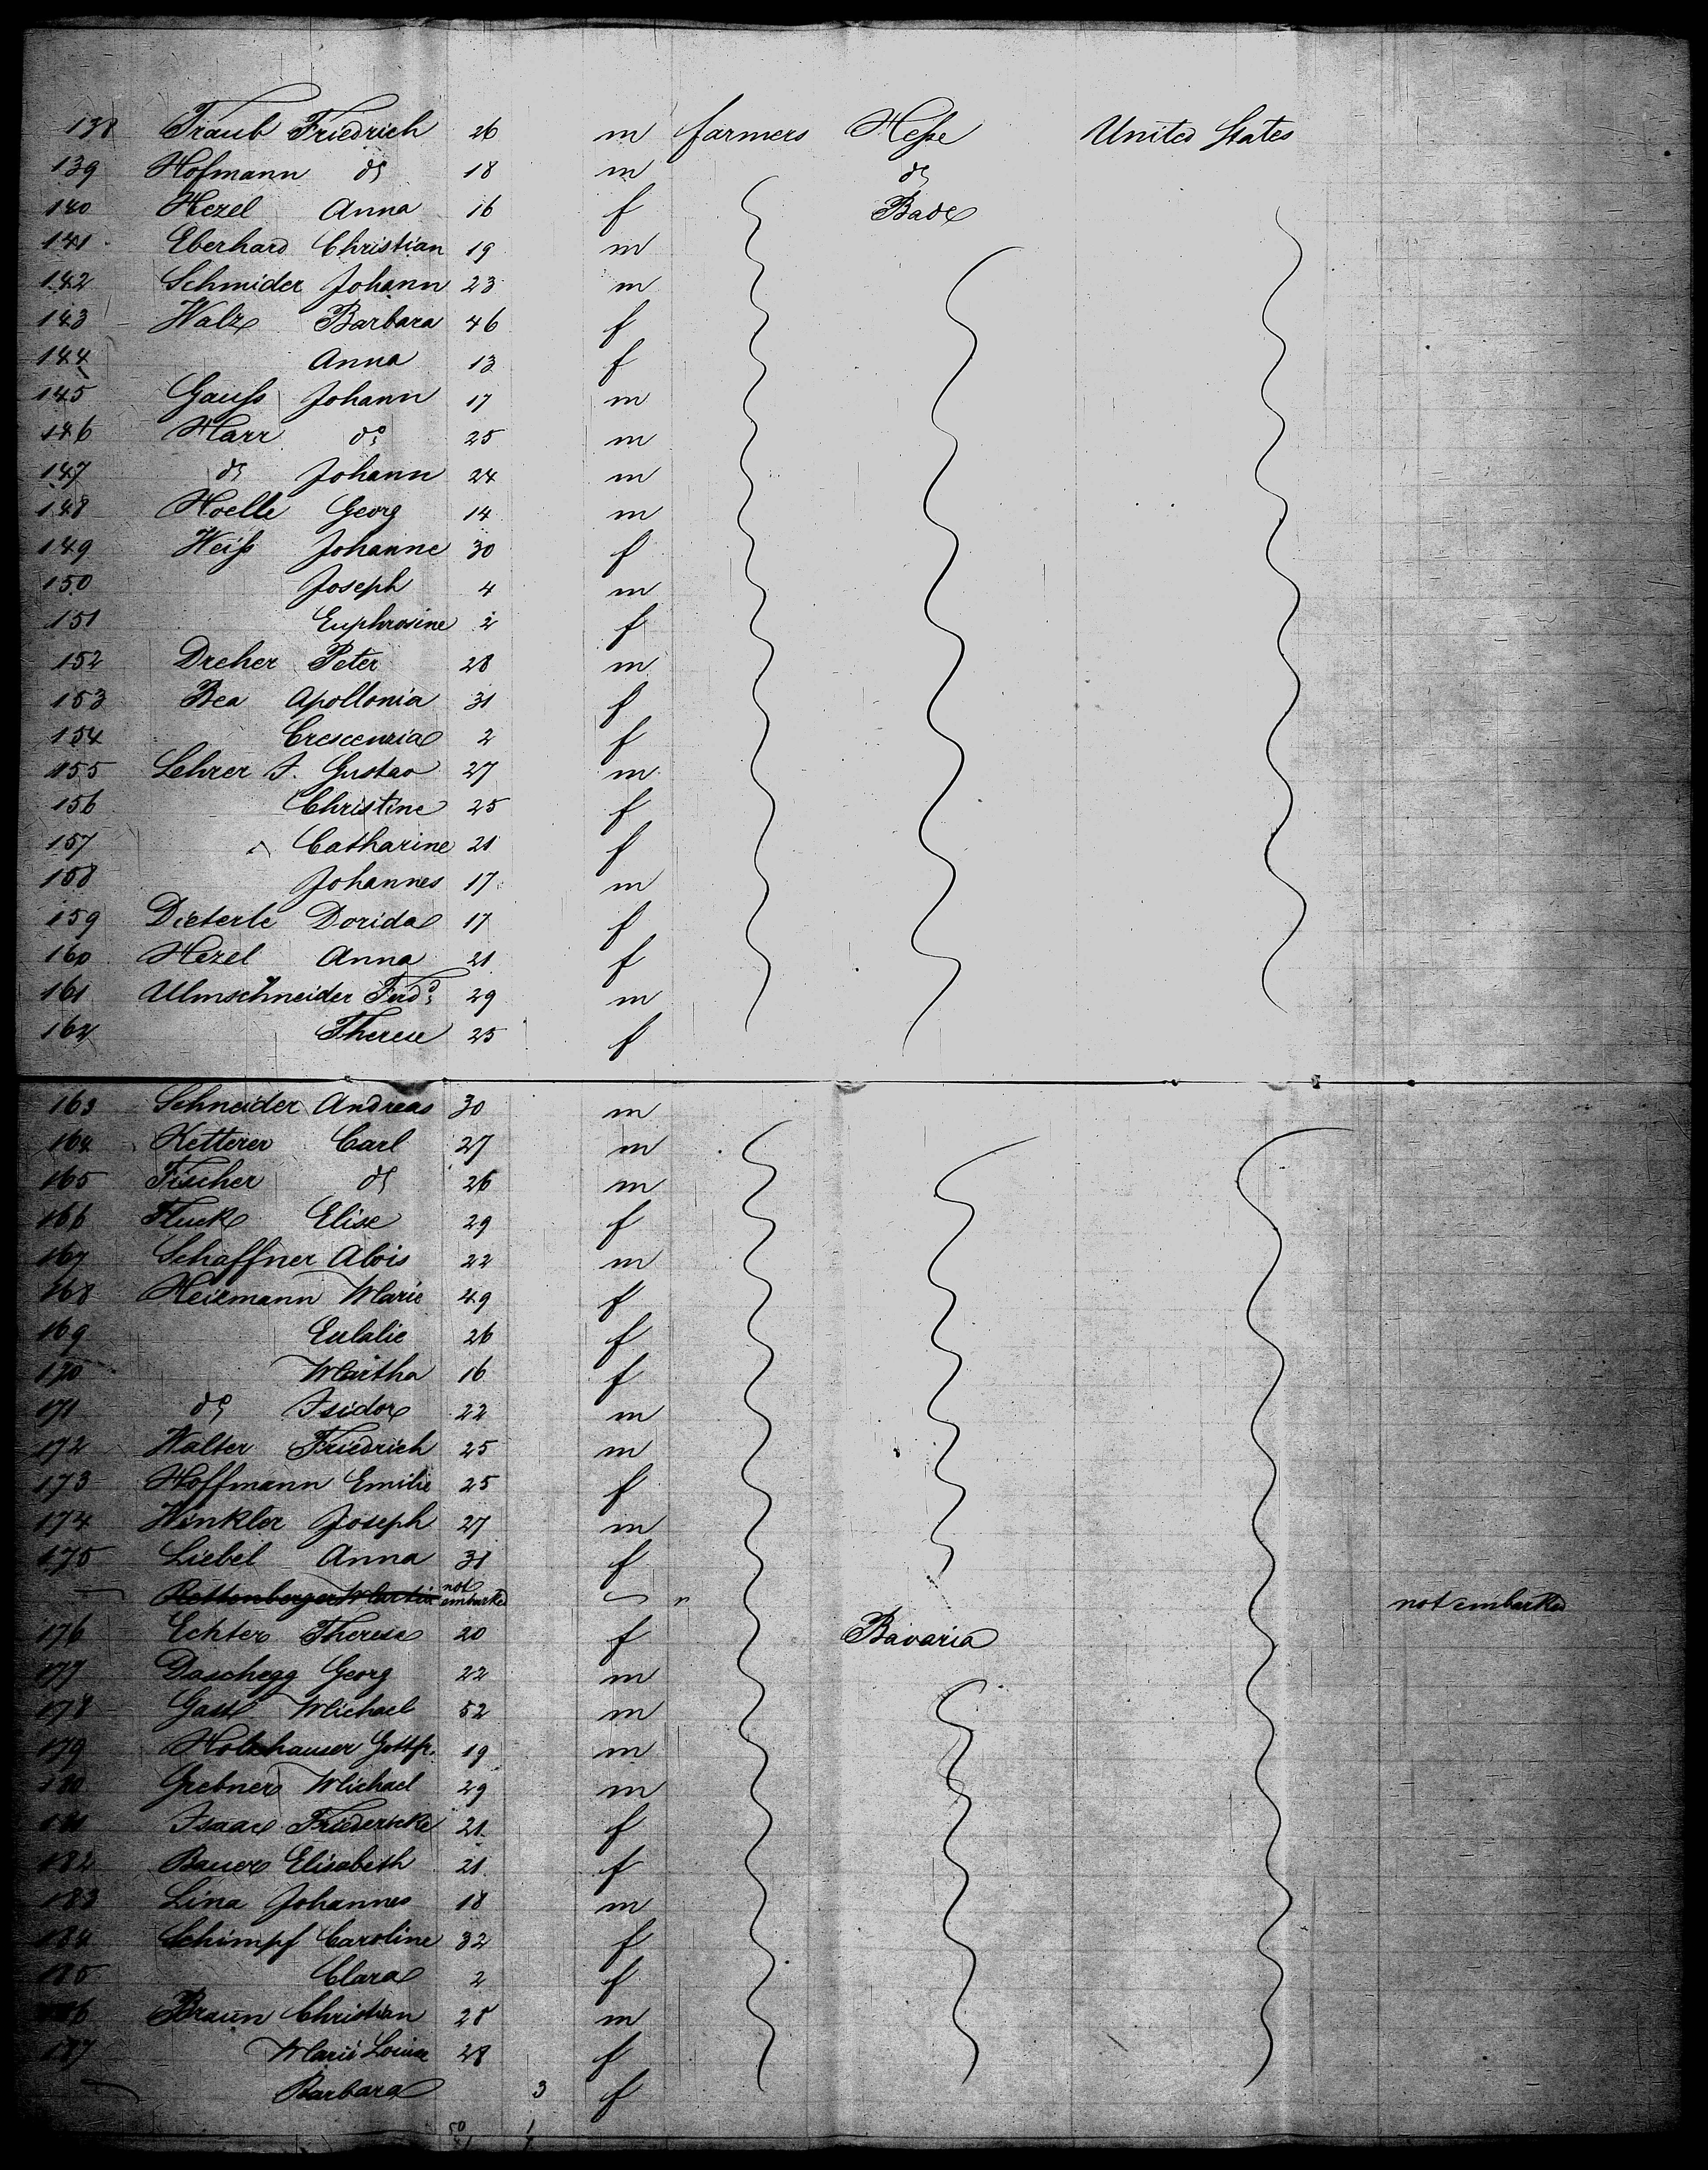 138 Traub Friedrich 26 m farmers Hesse United States
139 Hofmann do 18 m do
140 Hezel Anna 16 f Bade
141 Eberhard Christian 19 m
142 Schmider Johann 23 m
143 Walz Barbara 46 f
144 Anna 13 f
145 Gauss Johann 17 m
146 Harr do 25 m
147 do Johann 24 m
148 Hoelle Georg 14 m
149 Weiss Johanne 30 f
150 Joseph 4 m
151 Euphrosine 2 f
152 Dreher Peter 28 m
153 Bea Apollonia 31 f
154 Crescenzia 2 f
155 Lehrer J. Gustav 27 m
156 Christine 25 f
157 Catharine 21 f
158 Johannes 17 m
159 Dieterle Dorida 17 f
160 Hezel Anna 21 f
161 Ulmschneider Ferdd 29 m
162 Therese 25 f
163 Schneider Andreas 30 m
164 Ketterer Carl 27 m
165 Fischer do 26 m
166 Fluck Elise 29 f
167 Schaffner Alois 22 m
168 Heizmann Marie 49 f
169 Eulalie 26 f
170 Martha 16 f
171 do Isidor 22 m
172 Walter Friedrich 25 m
173 Hoffmann Emilie 25 f
174 Winkler Joseph 27 m
175 Liebel Anna 31 f
Rettenberger Martin not embarked " not embarked
176 Echter Therese 20 f Bavaria
177 Daschegg Georg 22 m
178 Gastl Michael 52 m
179 Holzhauser Gottfr. 19 m
180 Grebner Michael 29 m
181 Isaac Friedericke 21 f
182 Bauer Elisabeth 21 f
183 Lina Johannes 18 m
184 Schimpf Caroline 32 f
185 Clara 2 f
186 Braun Christian 28 m
187 Marie Louise 28 f
Barbara 3 f
50 1